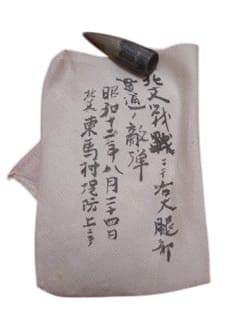 北支戦戰ニテ大腿部
貫通ノ敵弾
昭和十三年八月二十四日
北支東馬村堤防上ニテ